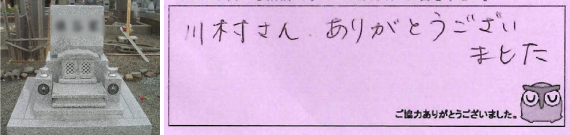 川村さん ありがとうござい
ました
ご協力ありがとうございました。